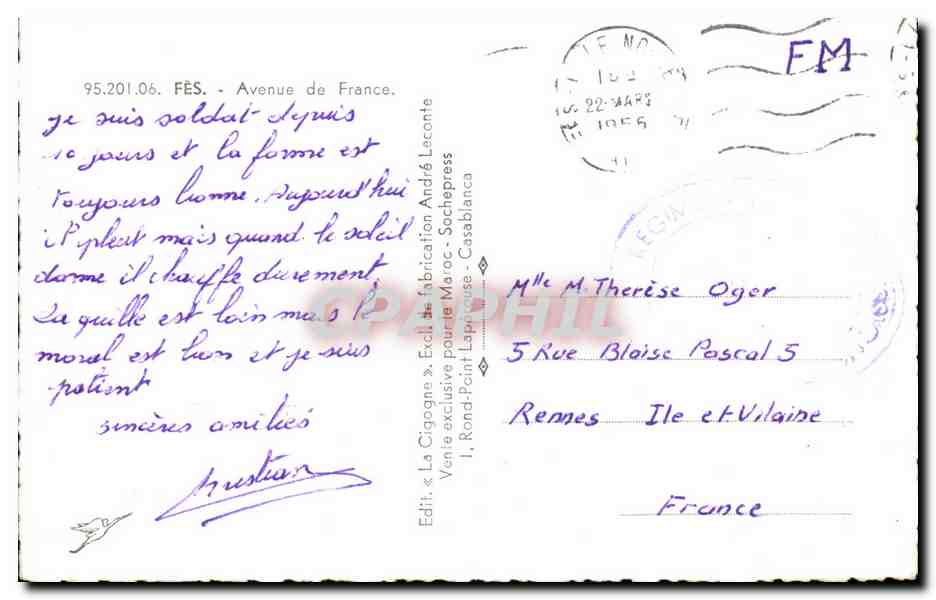 95.201.06. FÈS. - Avenue de France.
je suis soldat depuis
10 jours et la forme est
toujours bonne. Aujourd'hui
il pleut mais quand le soleil
donne il chauffe durement.
La quille est loin mais le
moral est bon et je suis
patient
sincères amitiés
Christian
Edit. « La Cigogne ». Excl. de fabrication André Leconte
Vente exclusive pour le Maroc - Sochepress
1, Rond-Point Lapérouse - Casablanca
FM
22 MARS
REGIM
Mlle M. Therèse Oger
5 Rue Blaise Pascal 5
Rennes Ile et Vilaine
France
CPAPHIL